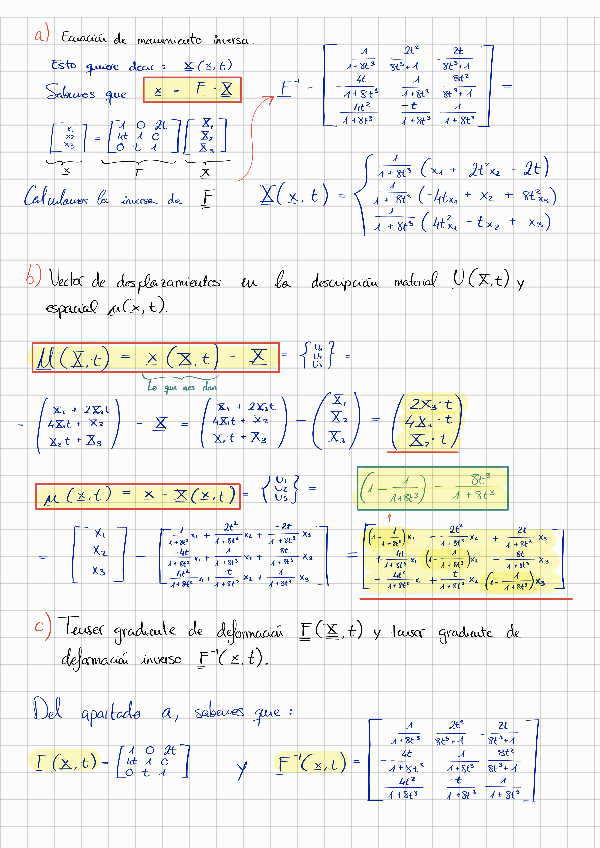 a) Ecuación de movimiento inversa.
Esto quiere decir : X(x,t)
Sabemos que x = F · X
[x₁ x₂ x₃] = [1 0 2t; 4t 1 0; 0 t 1] [X₁ X₂ X₃]
x F X
Calculamos la inversa de F
F⁻¹ = [1/(1+8t³) 2t²/(8t³+1) -2t/(8t³+1); -4t/(1+8t³) 1/(1+8t³) 8t²/(8t³+1); 4t²/(1+8t³) -t/(1+8t³) 1/(1+8t³)] =
X(x,t) = { 1/(1+8t³) (x₁ + 2t²x₂ - 2t)
1/(1+8t³) (-4tx₁ + x₂ + 8t²x₃)
1/(1+8t³) (4t²x₁ - tx₂ + x₃)
b) Vector de desplazamientos en la descripción material U(X,t) y
espacial u(x,t).
U(X,t) = x(X,t) - X = {U₁ U₂ U₃} =
Lo que nos dan
= (X₁ + 2X₃t; 4X₁t + X₂; X₂t + X₃) - X = (X₁ + 2X₃t; 4X₁t + X₂; X₂t + X₃) - (X₁ X₂ X₃) = (2X₃·t; 4X₁·t; X₂·t)
u(x,t) = x - X(x,t) = {U₁ U₂ U₃} =
(1 - 1/(1+8t³)) = 8t³/(1+8t³)
= [x₁ x₂ x₃] - [1/(1+8t³) x₁ + 2t²/(1+8t³) x₂ + -2t/(1+8t³) x₃; -4t/(1+8t³) x₁ + 1/(1+8t³) x₂ + 8t/(1+8t³) x₃; 4t²/(1+8t³) x₁ + -t/(1+8t³) x₂ + 1/(1+8t³) x₃] = [(1-1/(1+8t³))x₁ - 2t²/(1+8t³) x₂ + 2t/(1+8t³) x₃; + 4t/(1+8t³) x₁ (1-1/(1+8t³))x₂ - 8t/(1+8t³) x₃; - 4t²/(1+8t³) x₁ + t/(1+8t³) x₂ (1-1/(1+8t³))x₃]
c) Tensor gradiente de deformación F(X,t) y tensor gradiente de
deformación inverso F⁻¹(x,t).
Del apartado a, sabemos que :
F(X,t) = [1 0 2t; 4t 1 0; 0 t 1] y F⁻¹(x,t) = [1/(1+8t³) 2t²/(8t³+1) -2t/(8t³+1); -4t/(1+8t³) 1/(1+8t³) 8t²/(8t³+1); 4t²/(1+8t³) t/(1+8t³) 1/(1+8t³)]